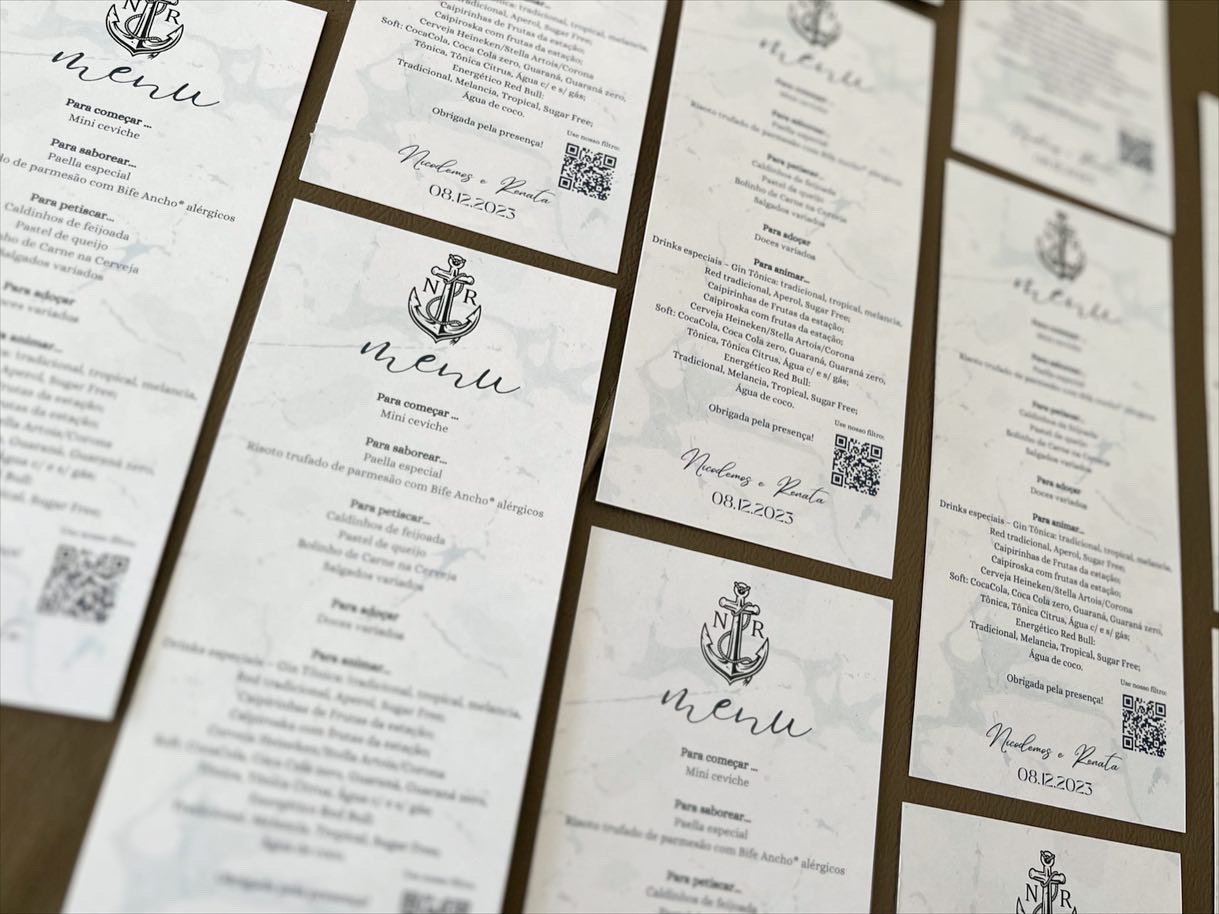 N R
menu
Para começar ...
Mini ceviche
Para saborear...
Paella especial
do de parmesão com Bife Ancho* alérgicos
Para petiscar...
Caldinhos de feijoada
Pastel de queijo
inho de Carne na Cerveja
Salgados variados
Para adoçar
Doces variados
animar...
tradicional, tropical, melancia,
Aperol, Sugar Free;
frutas da estação;
frutas da estação;
Stella Artois/Corona
Guaraná, Guaraná zero,
Água c/ e s/ gás;
Bull:
Tropical, Sugar Free;
Use nosso filtro:
Red tradicional, Aperol, Sugar Free;
Caipirinhas de Frutas da estação;
Caipiroska com frutas da estação;
Cerveja Heineken/Stella Artois/Corona
Soft: CocaCola, Coca Cola zero, Guaraná, Guaraná zero,
Tônica, Tônica Citrus, Água c/ e s/ gás;
Energético Red Bull:
Tradicional, Melancia, Tropical, Sugar Free;
Água de coco.
Obrigada pela presença!
Use nosso filtro:
Nicodemos e Renata
08.12.2023
menu
Para começar ...
Mini ceviche
Para saborear...
Paella especial
Risoto trufado de parmesão com Bife Ancho* alérgicos
Para petiscar...
Caldinhos de feijoada
Pastel de queijo
Bolinho de Carne na Cerveja
Salgados variados
Para adoçar
Doces variados
Para animar...
Drinks especiais – Gin Tônica: tradicional, tropical, melancia,
Red tradicional, Aperol, Sugar Free;
Caipirinhas de Frutas da estação;
Caipiroska com frutas da estação;
Cerveja Heineken/Stella Artois/Corona
Soft: CocaCola, Coca Cola zero, Guaraná, Guaraná zero,
Tônica, Tônica Citrus, Água c/ e s/ gás;
Energético Red Bull:
Tradicional, Melancia, Tropical, Sugar Free;
Água de coco.
Obrigada pela presença!
Use nosso filtro:
Nicodemos e Renata
08.12.2023
N R
menu
Para começar ...
Mini ceviche
Para saborear...
Paella especial
Risoto trufado de parmesão com Bife Ancho* alérgicos
Para petiscar...
Caldinhos de feijoada
Pastel de queijo
Bolinho de Carne na Cerveja
Salgados variados
Para adoçar
Doces variados
Para animar...
Drinks especiais – Gin Tônica: tradicional, tropical, melancia,
Red tradicional, Aperol, Sugar Free;
Caipirinhas de Frutas da estação;
Caipiroska com frutas da estação;
Cerveja Heineken/Stella Artois/Corona
Soft: CocaCola, Coca Cola zero, Guaraná, Guaraná zero,
Tônica, Tônica Citrus, Água c/ e s/ gás;
Energético Red Bull:
Tradicional, Melancia, Tropical, Sugar Free;
Água de coco.
Obrigada pela presença!
menu
Para saborear...
Paella especial
Risoto trufado de parmesão com Bife Ancho* alérgicos
Para petiscar...
Caldinhos de feijoada
Pastel de queijo
Bolinho de Carne na Cerveja
Salgados variados
Para adoçar
Doces variados
Para animar...
Drinks especiais – Gin Tônica: tradicional, tropical, melancia,
Red tradicional, Aperol, Sugar Free;
Caipirinhas de Frutas da estação;
Caipiroska com frutas da estação;
Cerveja Heineken/Stella Artois/Corona
Soft: CocaCola, Coca Cola zero, Guaraná, Guaraná zero,
Tônica, Tônica Citrus, Água c/ e s/ gás;
Energético Red Bull:
Tradicional, Melancia, Tropical, Sugar Free;
Água de coco.
Obrigada pela presença!
Use nosso filtro:
Nicodemos e Renata
08.12.2023
N R
menu
Para começar ...
Mini ceviche
Para saborear...
Paella especial
Risoto trufado de parmesão com Bife Ancho* alérgicos
Para petiscar...
Caldinhos de feijoada
Pastel de queijo
N R